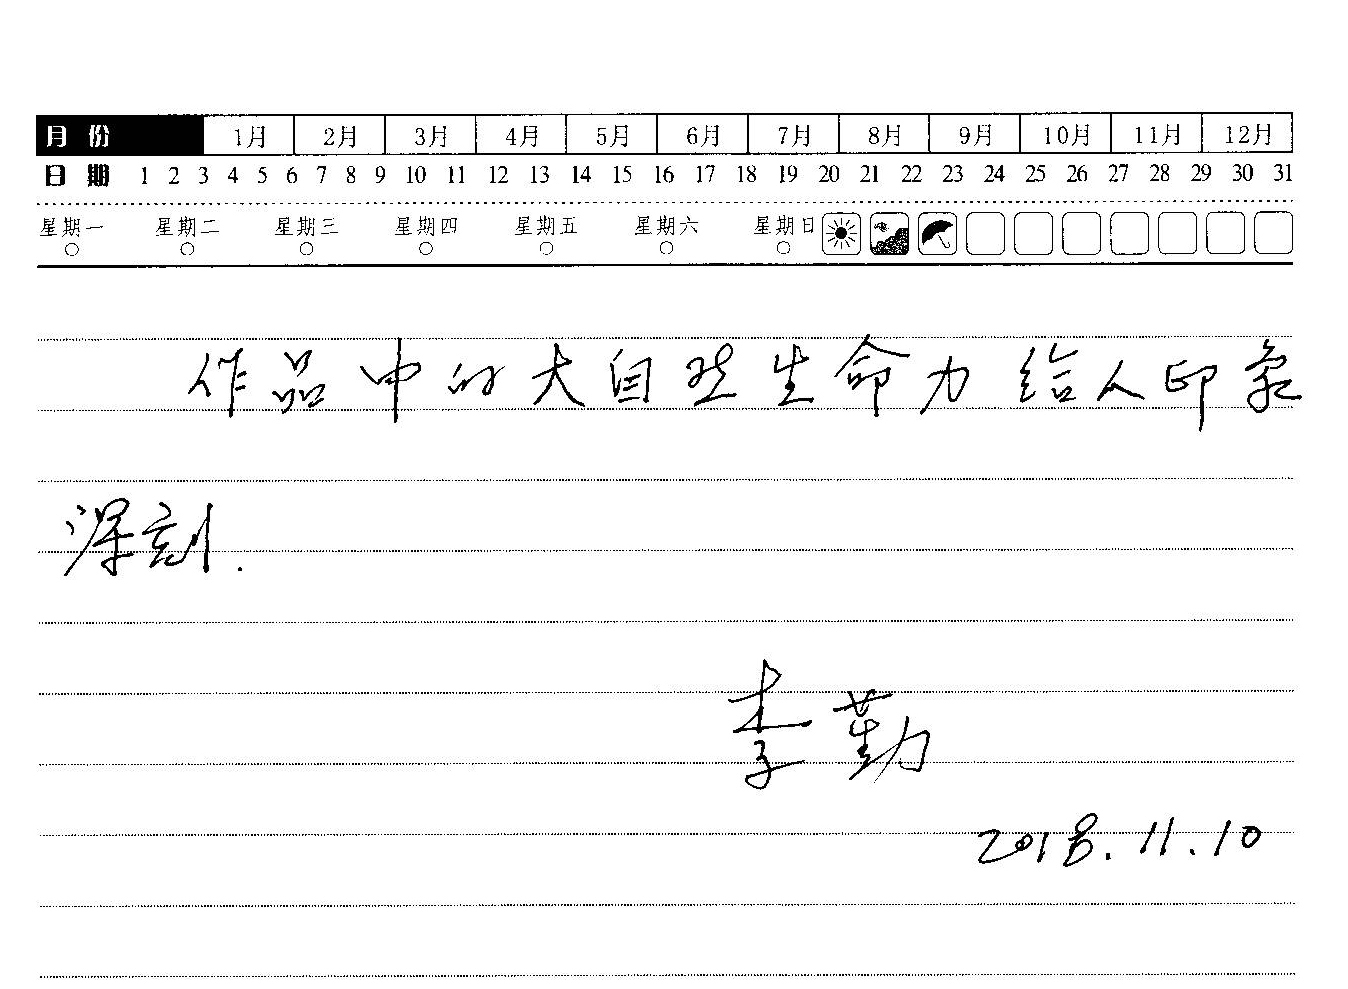 月份 1月 2月 3月 4月 5月 6月 7月 8月 9月 10月 11月 12月
日期 1 2 3 4 5 6 7 8 9 10 11 12 13 14 15 16 17 18 19 20 21 22 23 24 25 26 27 28 29 30 31
星期一 星期二 星期三 星期四 星期五 星期六 星期日
作品中的大自然生命力给人印象
深刻.
李勤
2018.11.10